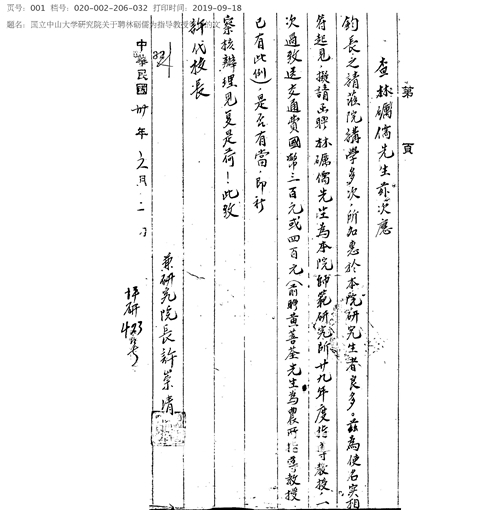 页号：001 档号：020-002-206-032 打印时间：2019-09-18
题名：国立中山大学研究院关于聘林砺儒为指导教授的文
第 頁
查林礪儒先生前次應
鈞長之請蒞院講學多次，所加惠於本院研究生者良多。茲為使名实相
符起見，擬請出聘林礪儒先生為本院師範研究所廿九年度指導教授，一
次過致送交通費國幣三百元或四百元（前聘黃善荃先生為農所指導教授
已有此例），是否有當，即祈
察核辦理見复是荷！此致
許代校長
兼研究院長許崇清
中華民國卅年 六月 二 日
坪研 423 号